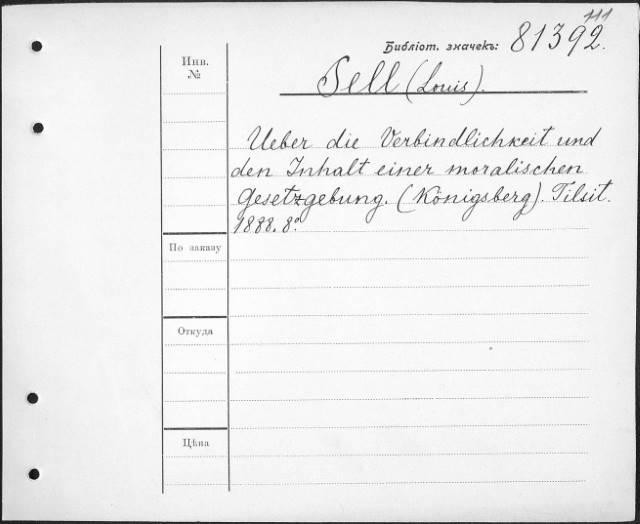 111
Библіот. значекъ: 81392.
Инв.
№
Sell (Louis).
Ueber die Verbindlichkeit und
den Inhalt einer moralischen
Gesetzgebung. (Königsberg). Tilsit.
1888. 8º.
По заказу
Откуда
Цѣна